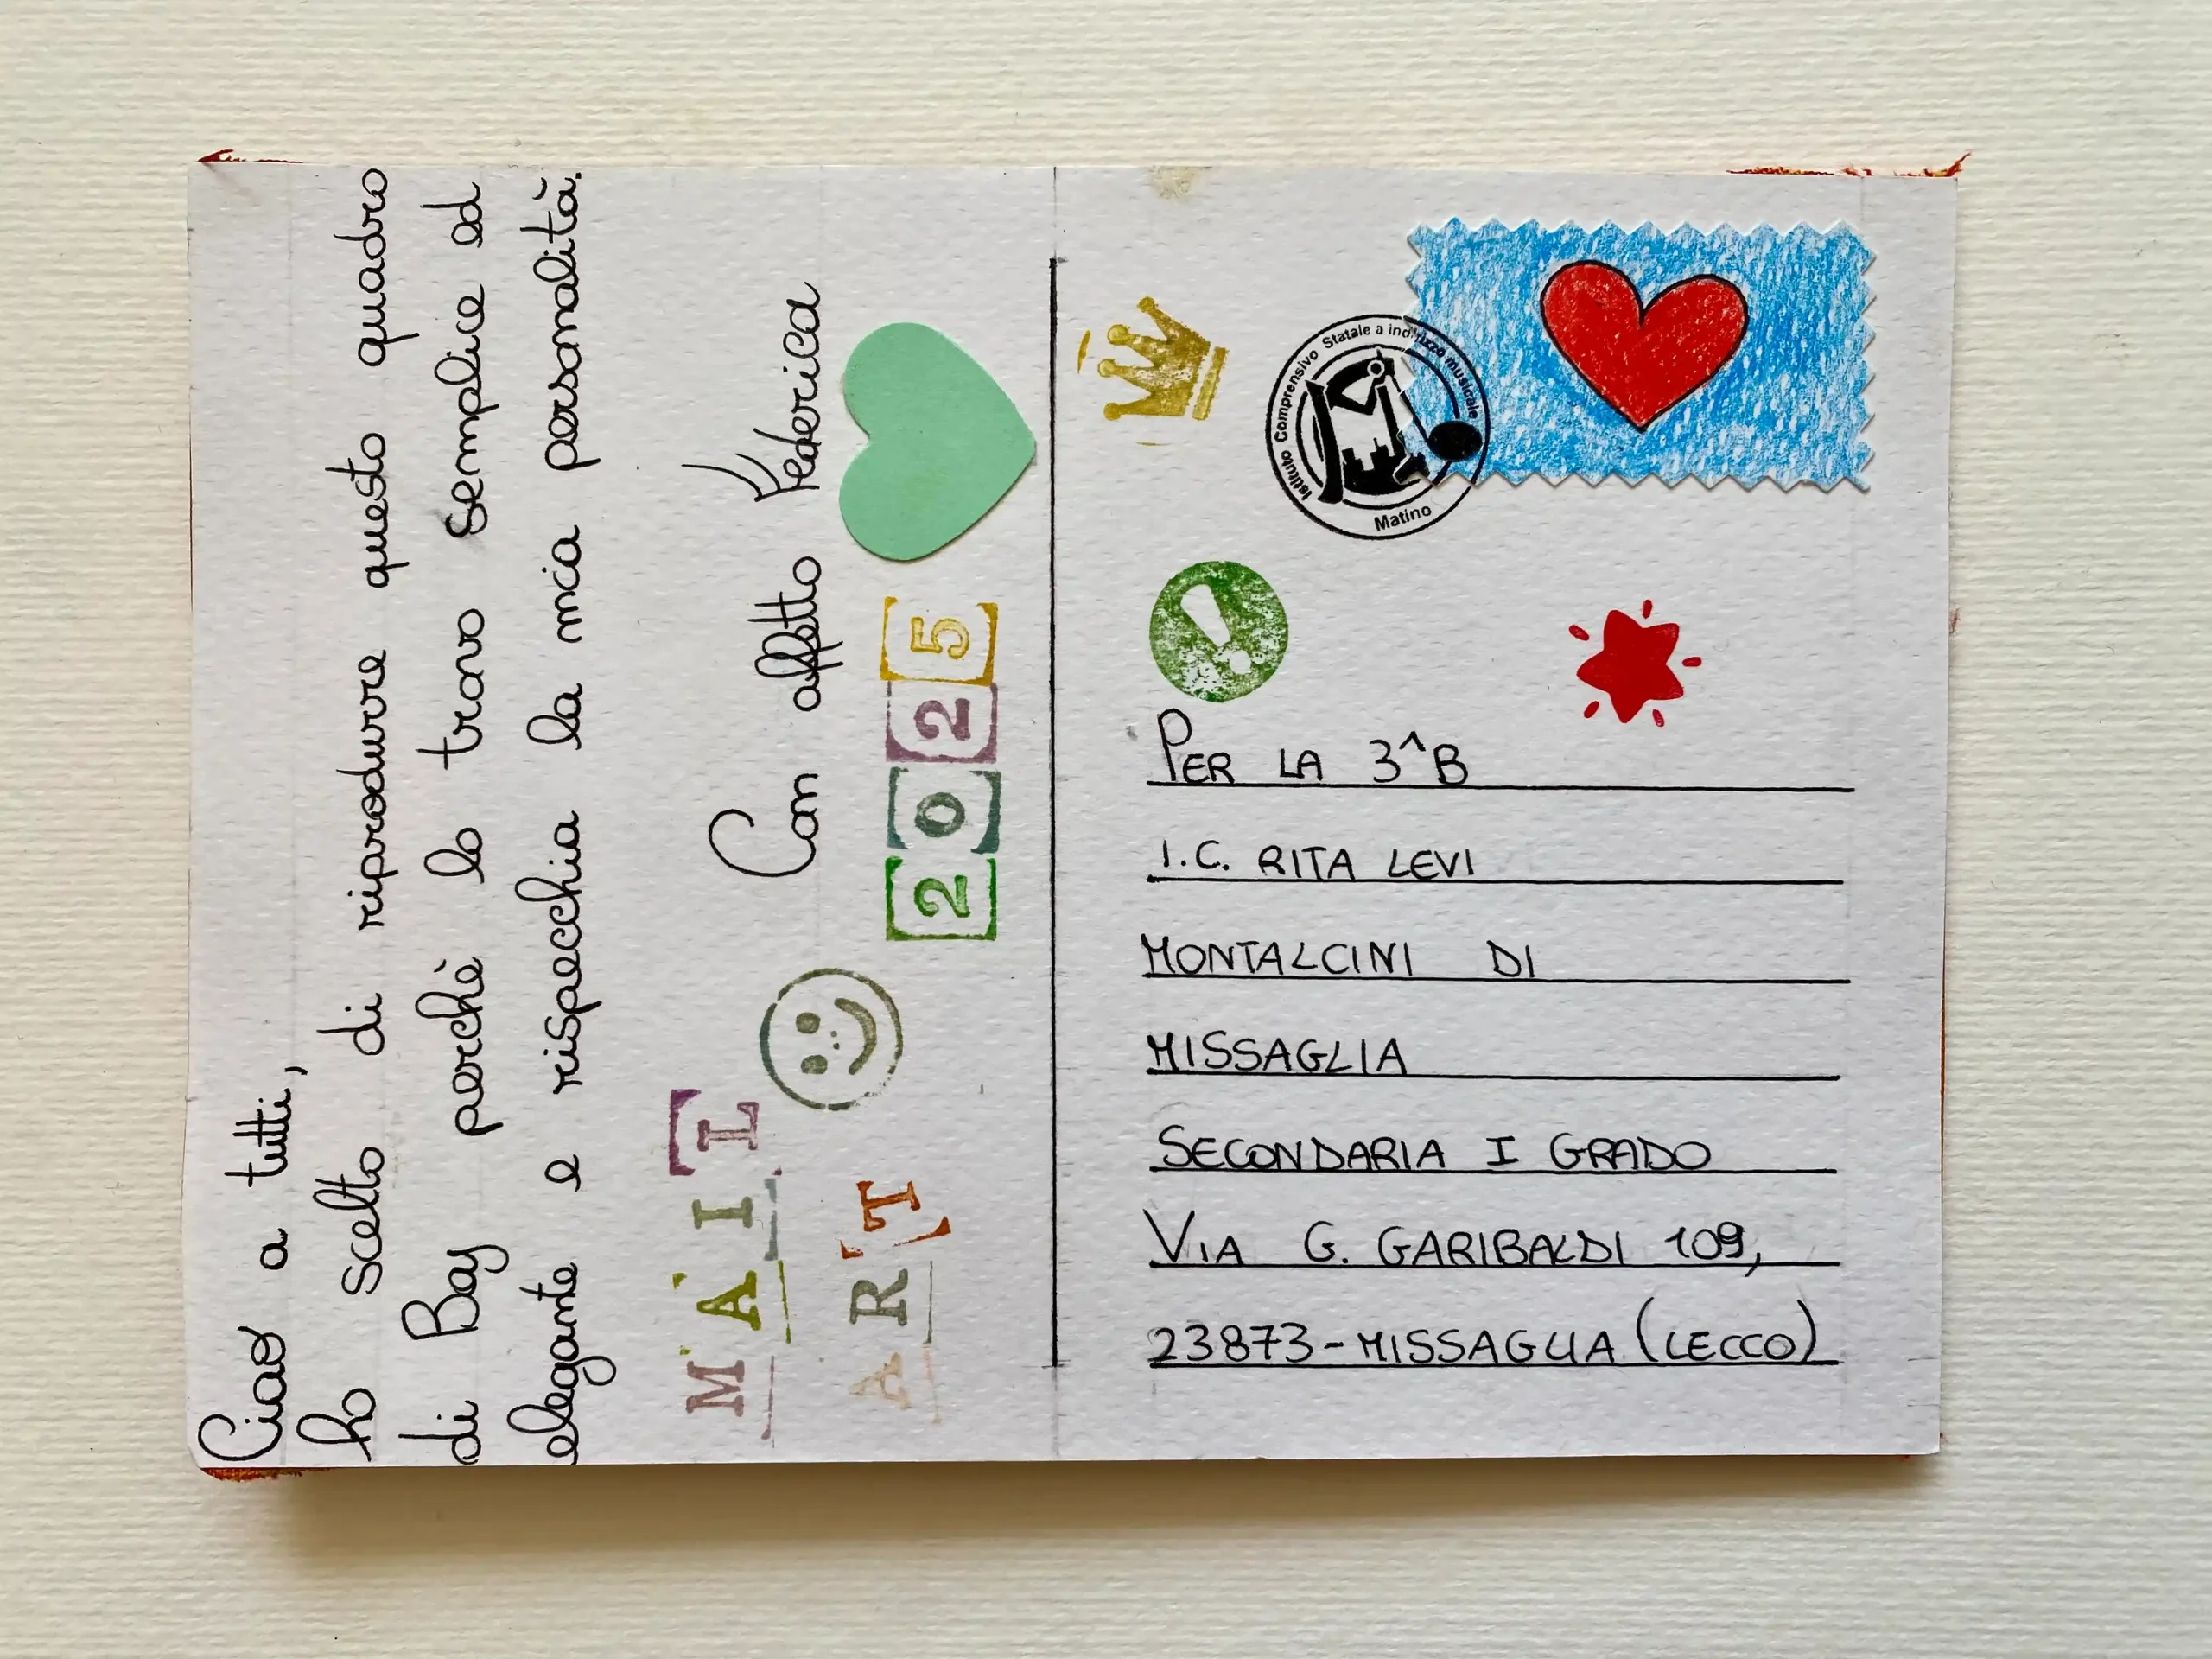 Ciao a tutti,
ho scelto di riprodurre questo quadro
di Bay perchè lo trovo semplice ed
elegante e rispecchia la mia personalità.
Con affetto Federica
MAIL
ART
2025
Istituto Comprensivo Statale a indirizzo musicale
Matino
!
PER LA 3^B
I.C. RITA LEVI
MONTALCINI DI
MISSAGLIA
SECONDARIA I GRADO
VIA G. GARIBALDI 109,
23873-MISSAGLIA (LECCO)